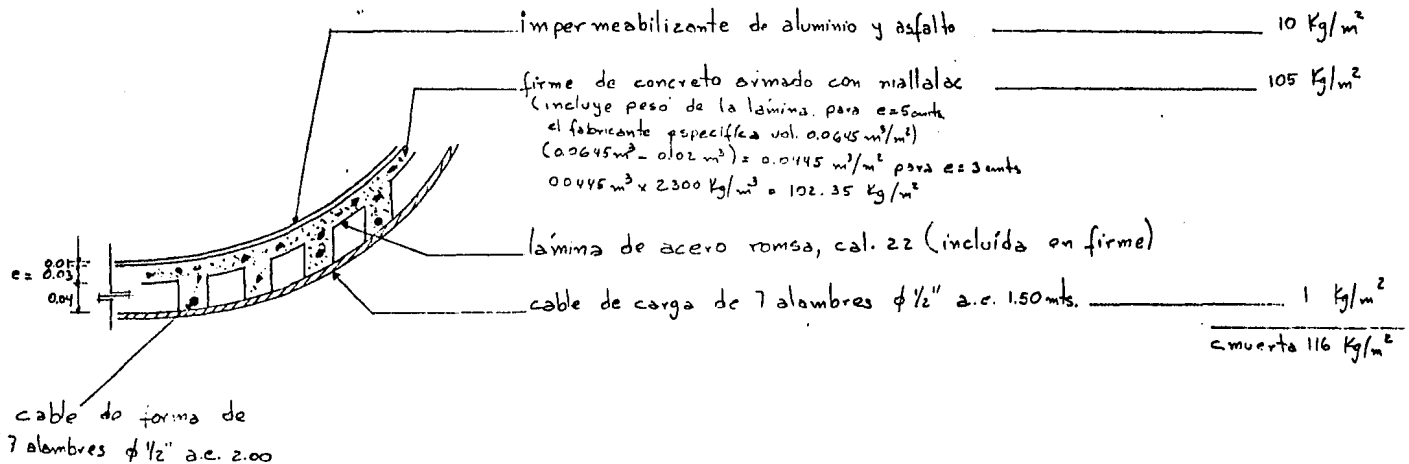 impermeabilizante de aluminio y asfalto 10 Kg/m²
firme de concreto armado con mallalac 105 Kg/m²
(incluye peso de la lámina. para e=5cmts
el fabricante especifica vol. 0.0645 m³/m²)
(0.0645m³ - 0.02 m³) = 0.0445 m³/m² para e=3 cmts
0.0445m³ x 2300 Kg/m³ = 102.35 Kg/m²
lámina de acero romsa, cal. 22 (incluída en firme)
0.01
e = 0.03
0.04
cable de carga de 7 alambres ϕ 1/2" a.c. 1.50 mts. 1 Kg/m²
c muerta 116 Kg/m²
cable de forma de
7 alambres ϕ 1/2" a.c. 2.00